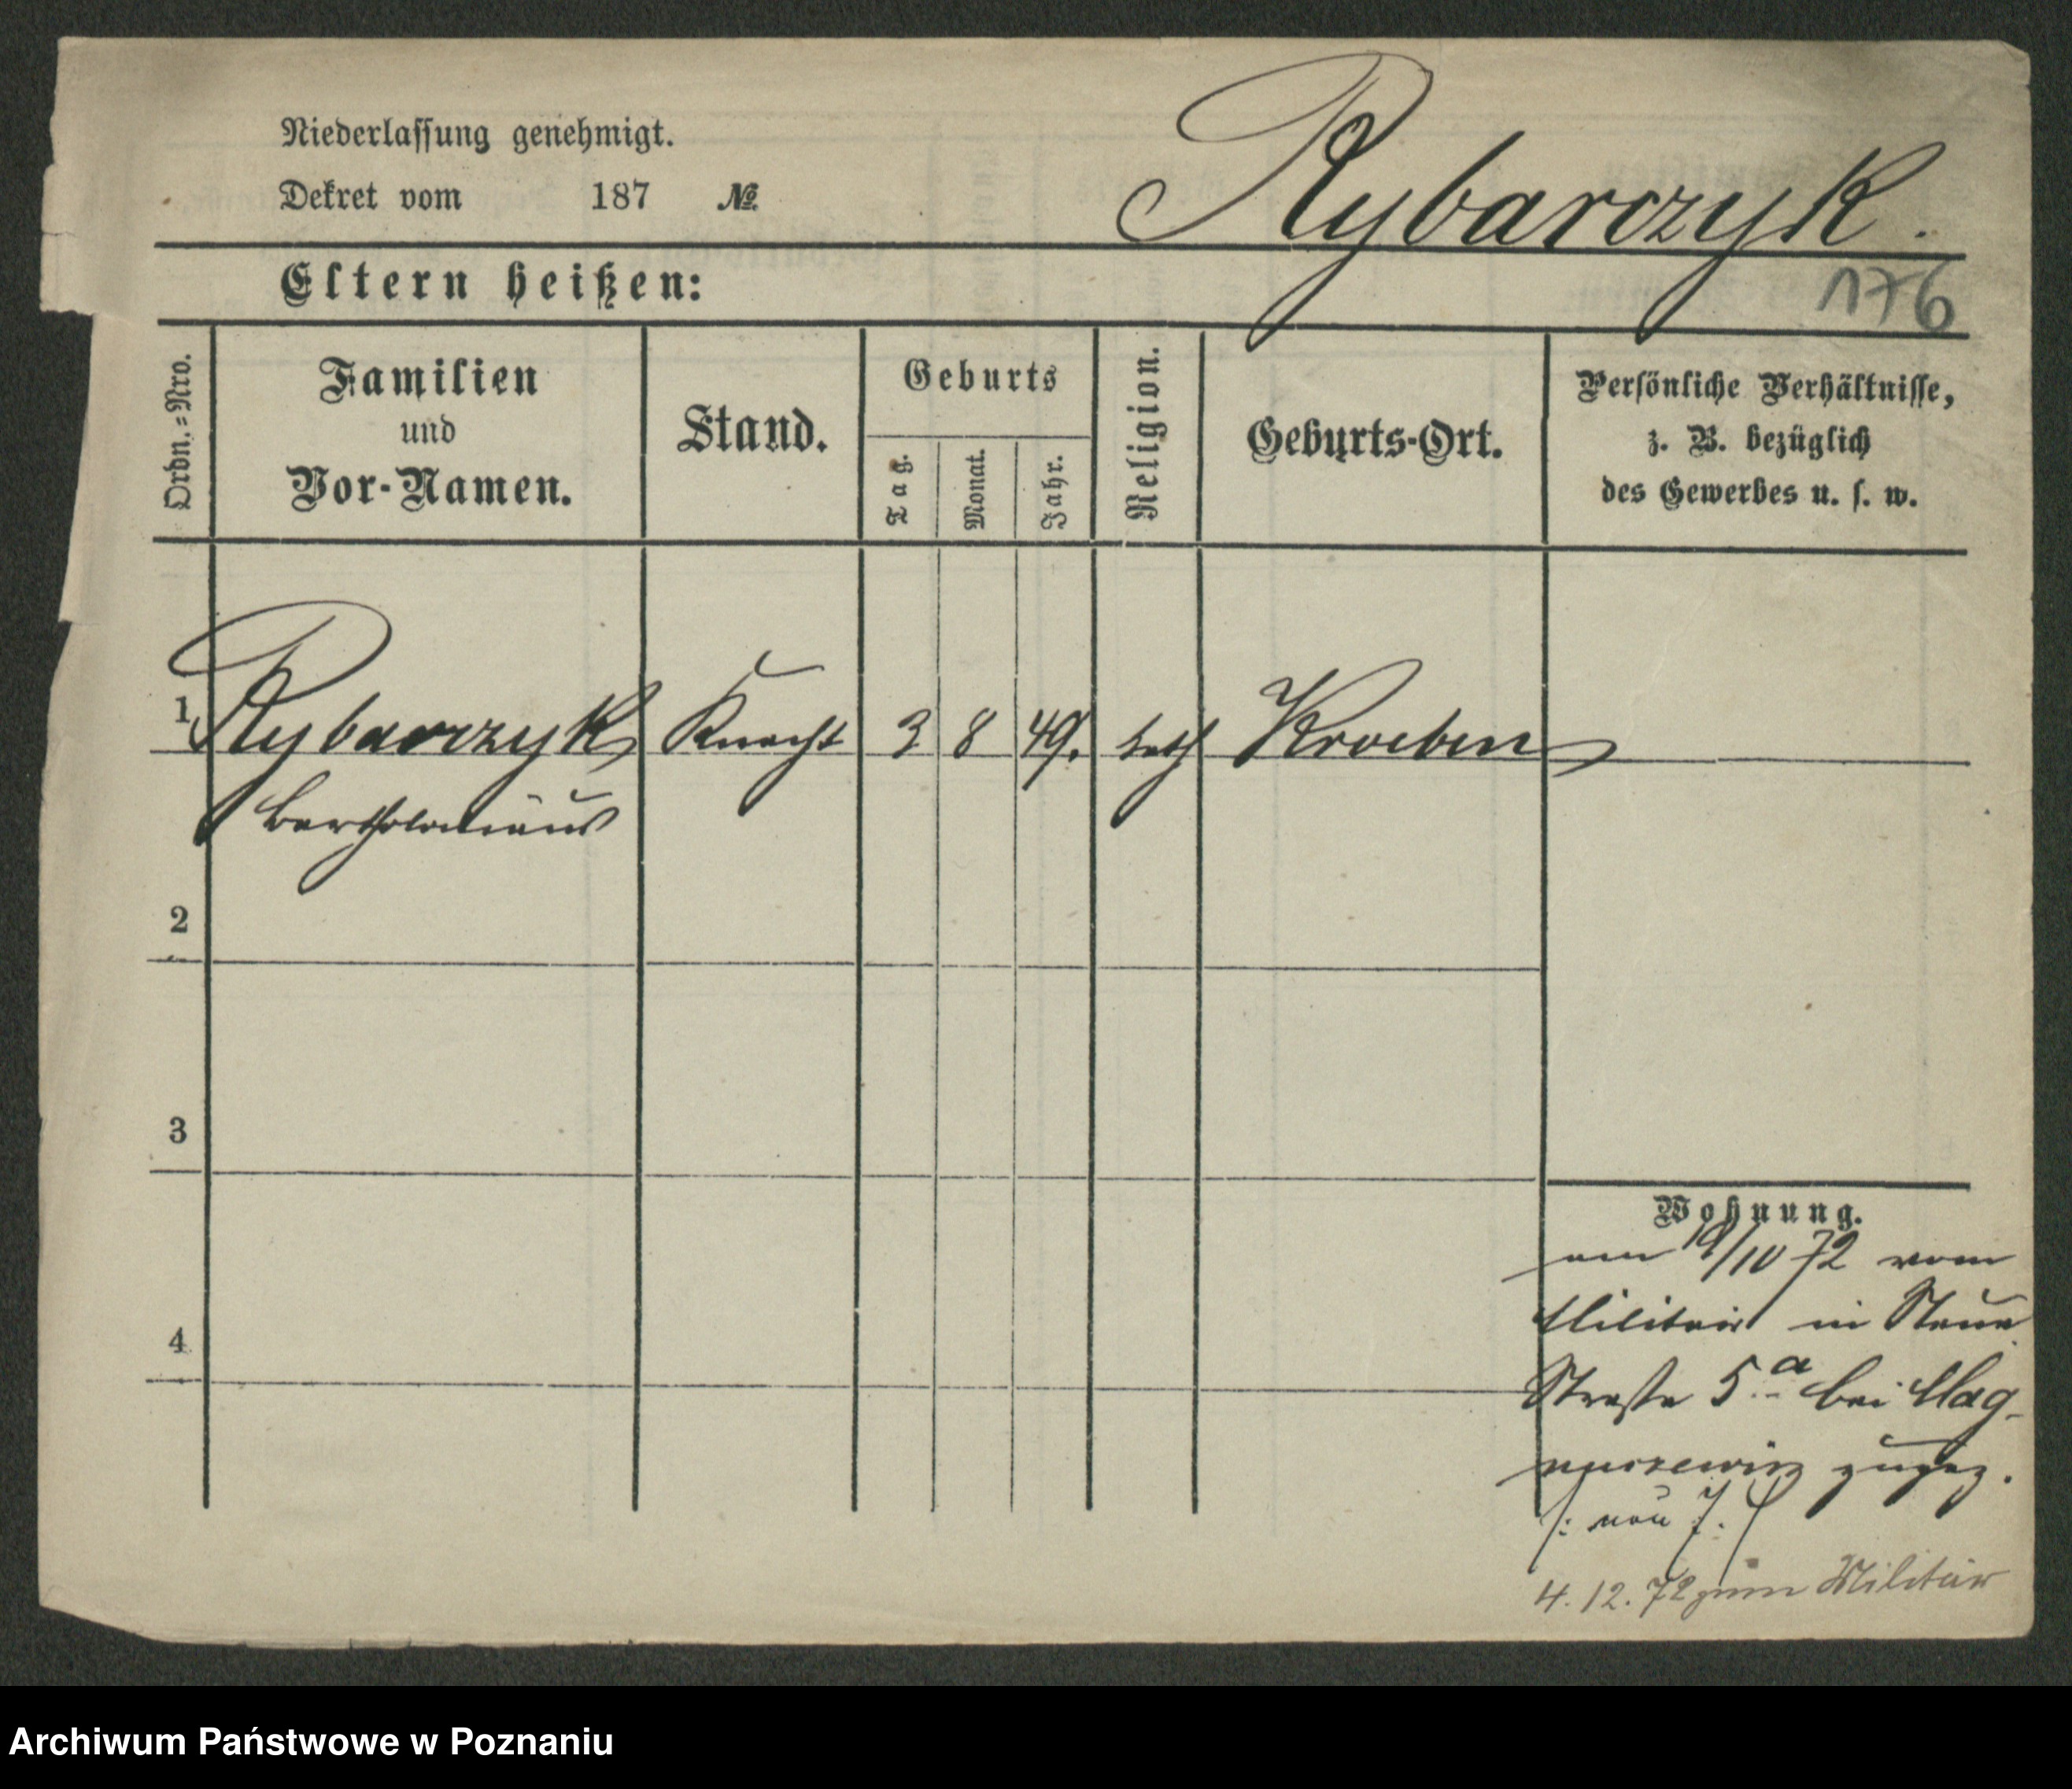 Niederlassung genehmigt.
Dekret vom 187 №
Rybarczyk.
Eltern heißen:
176
Ordn.=Nro.
Familien
und
Vor-Namen.
Stand.
Geburts
Tag.
Monat.
Jahr.
Religion.
Geburts-Ort.
Persönliche Verhältnisse,
z. B. bezüglich
des Gewerbes u. s. w.
1 Rybarczyk Knecht 3 8 49. kath Kroeben
Bartholomäus
2
3
4
Wohnung.
am /10 72 vom
Militair in
Straße 5 a bei Mag-
nuszewicz zugez.
/: neu
4. 12. 72 zum Militär
Archiwum Państwowe w Poznaniu